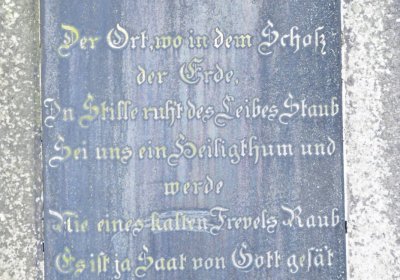 Der Ort, wo in dem Schoß
der Erde,
In Stille ruht des Leibes Staub
Sei uns ein Heiligthum und
werde
Nie eines kalten Frevels Raub
Es ist ja Saat von Gott gesä't